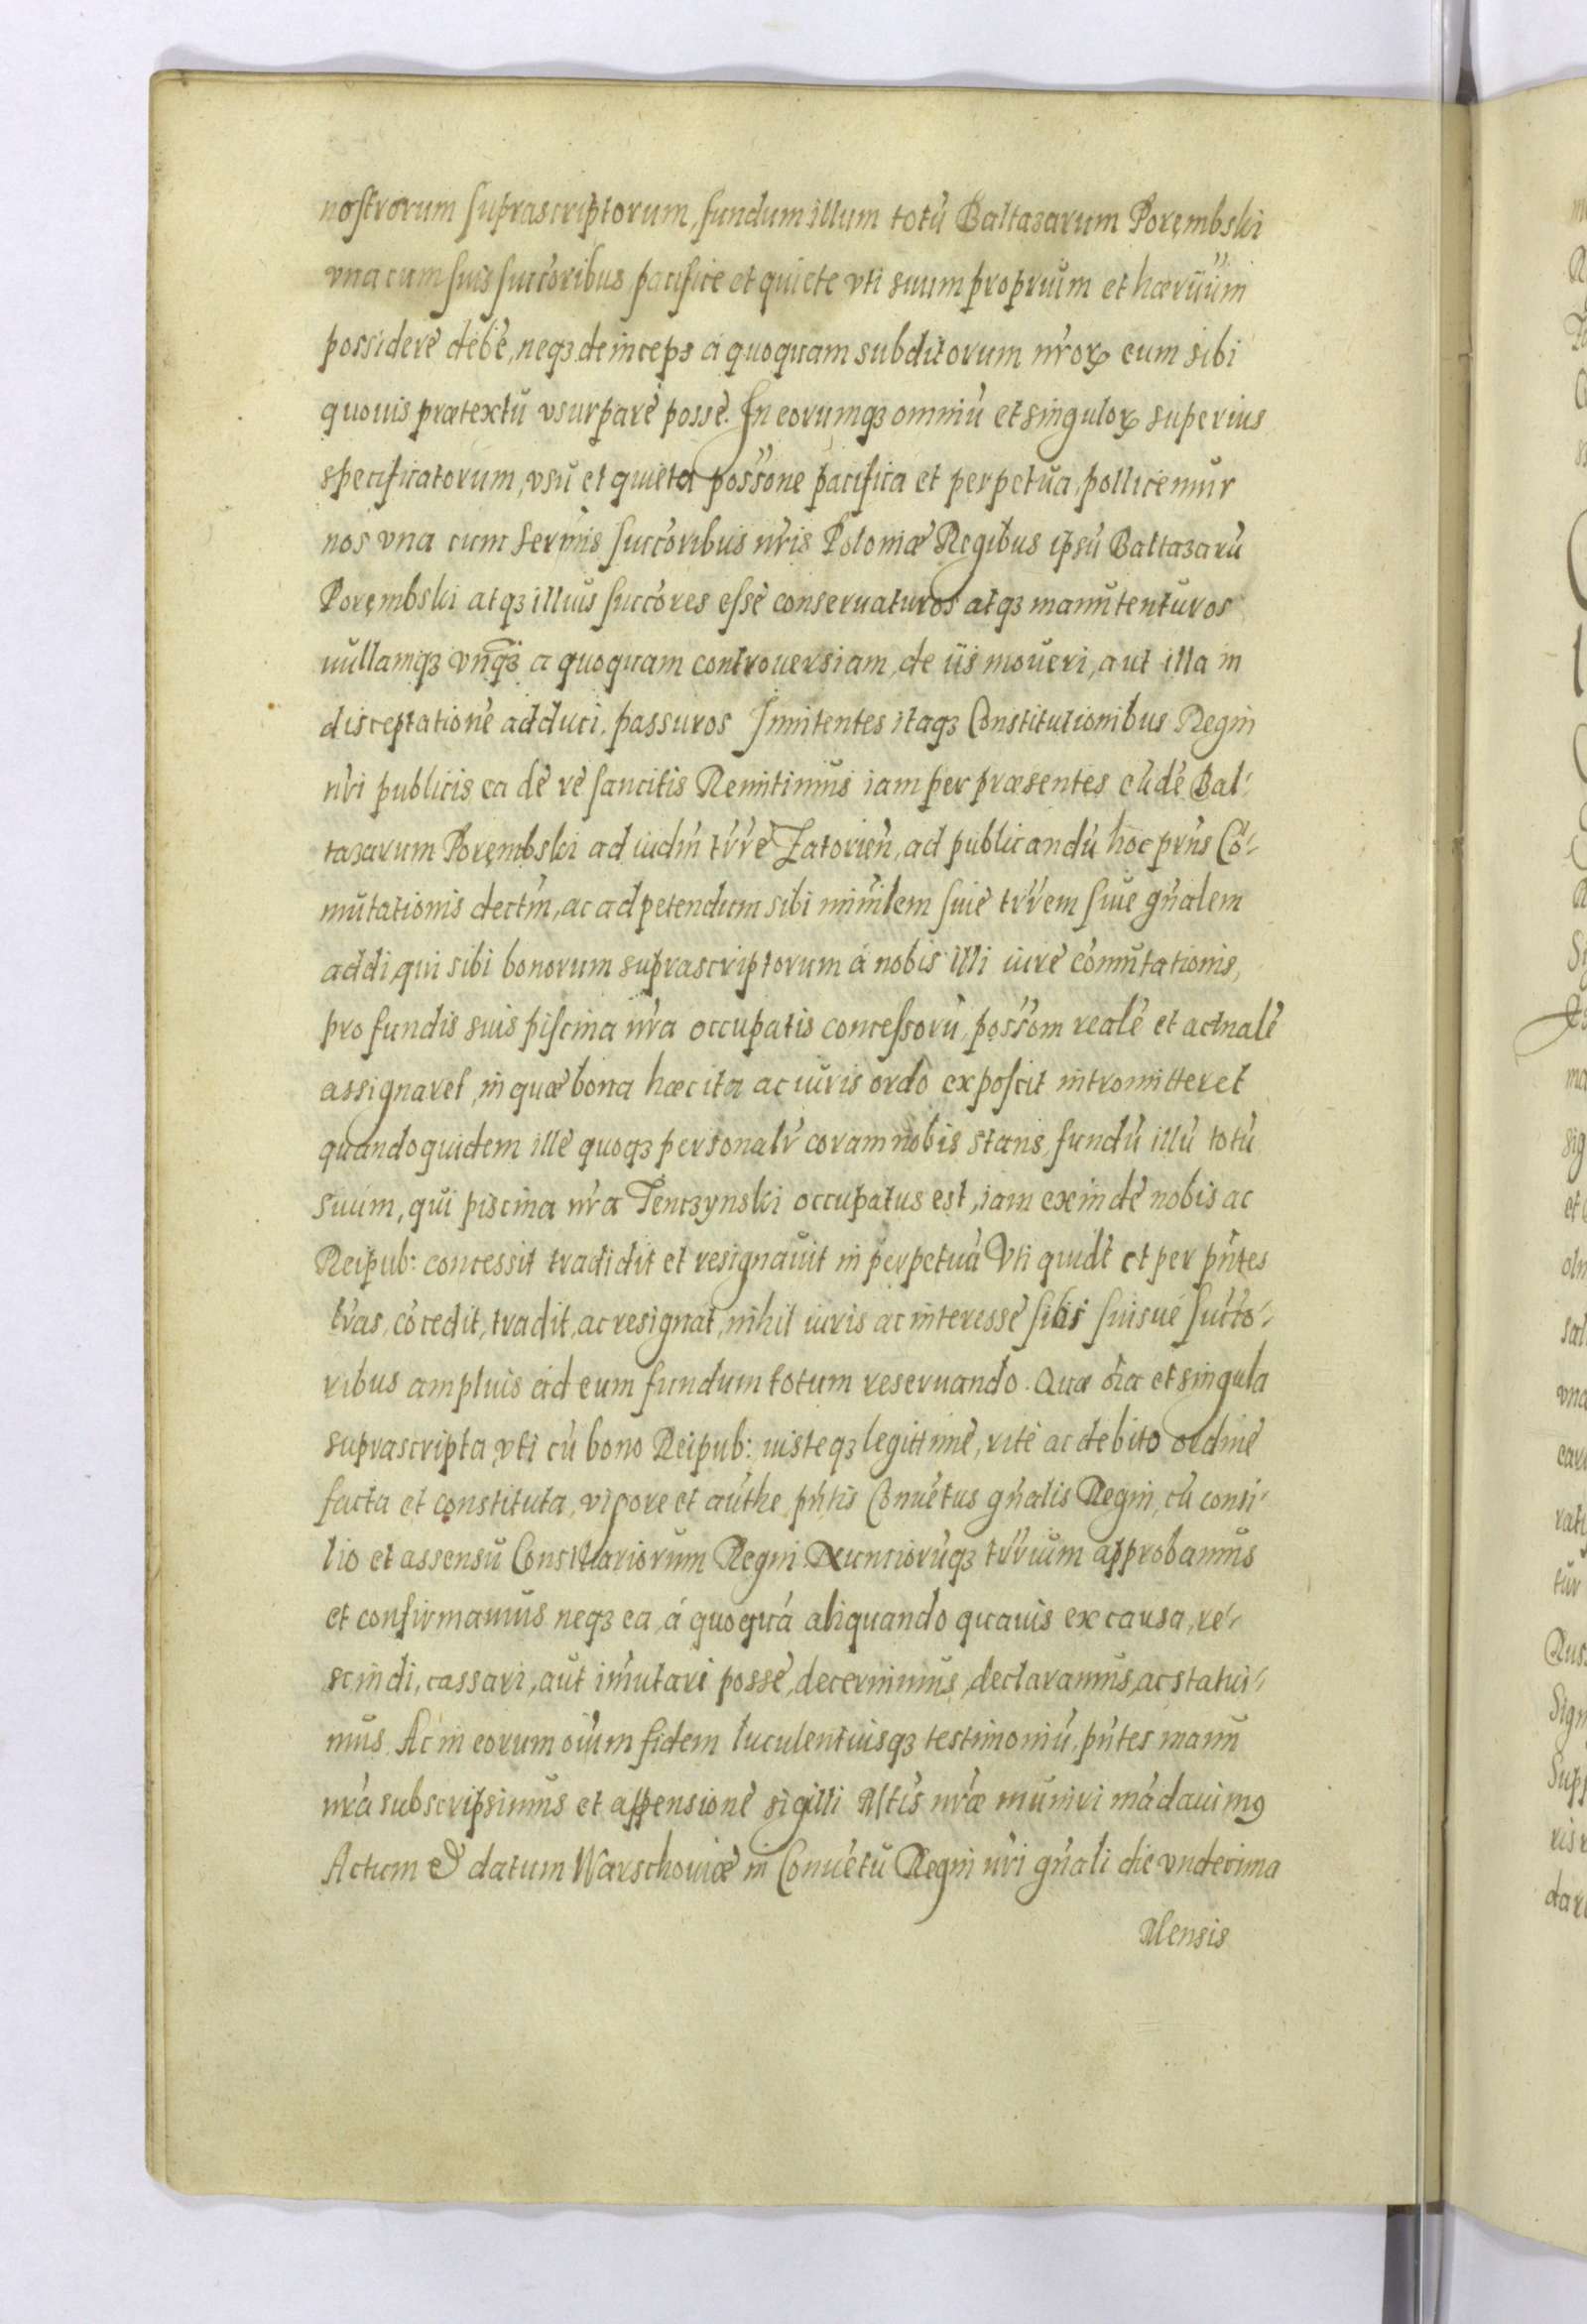 nostrorum suprascriptorum, fundum illum totū Baltazarum Porembski
vna cum suis succoribus pacifice et quiete vti suum proprium et hæriūm
possidere debe, neqз deinceps a quoquam subditorum nroꝝ eum sibi
quouis prætextu vsurpare posse. In eorumqз omniū et singuloꝝ superius
specificatorum, vsu et quieta possone pacifica et perpetua, pollicemur
nos vna cum sermis succoribus nris Poloniæ Regibus ipsū Baltazarū
Porembski atqз illius succores esse conseruaturos atqз manutenturos
nullamqз vnqз a quoquam controuersiam, de iis moueri, aut illa in
disceptatione adduci, passuros Innitentes itaqз Constitutionibus Regni
nri publicis ea de re sancitis Remitimus iam per præsentes eūde Bal-
tazarum Porembski ad iudm trre Zatorien, ad publicandū hoc prns Cō-
mutationis dectm, ac ad petendum sibi minlem siue trrem siue gnalem
addi, qui sibi bonorum suprascriptorum á nobis illi iure comutationis,
pro fundis suis piscina nra occupatis concessorū, possom reale et actuale
assignaret, in quæ bona hæc ita ac iuris ordo exposcit intromitteret
quandoquidem ille quoqз personalr coram nobis stans, fundū illū totū
suum, qui piscina nra Tenczynski occupatus est, iam exinde nobis ac
Reipub: concessit tradidit et resignauit in perpetuā Vti quidē et per pntes
lras, cōcedit, tradit, ac resignat, nihil iuris ac interesse sibi suisue succo-
ribus amplius ad eum fundum totum reseruando. Quæ oīa et singula
suprascripta, vti cū bono Reipub: iusteqз legittime, rite ac debito ordine
facta et constituta, vigore et authe pntis Conuētus gnalis Regni, cū consi-
lio et assensu Consiliariorum Regni Nunciorūqз trrium approbamus
et confirmamus neqз ea, á quoquā aliquando quauis ex causa, re-
scindi, cassari, aut imutari posse, decernimus, declaramus, ac statui-
mus. Ac in eorum oium fidem luculentiusqз testimoniū, pntes manu
nra subscripsimus et appensione sigilli Mtis nræ muniri mādauimꝰ
Actum & datum Warschouiæ in Conuētu Regni nri gnali die vndecima
Mensis